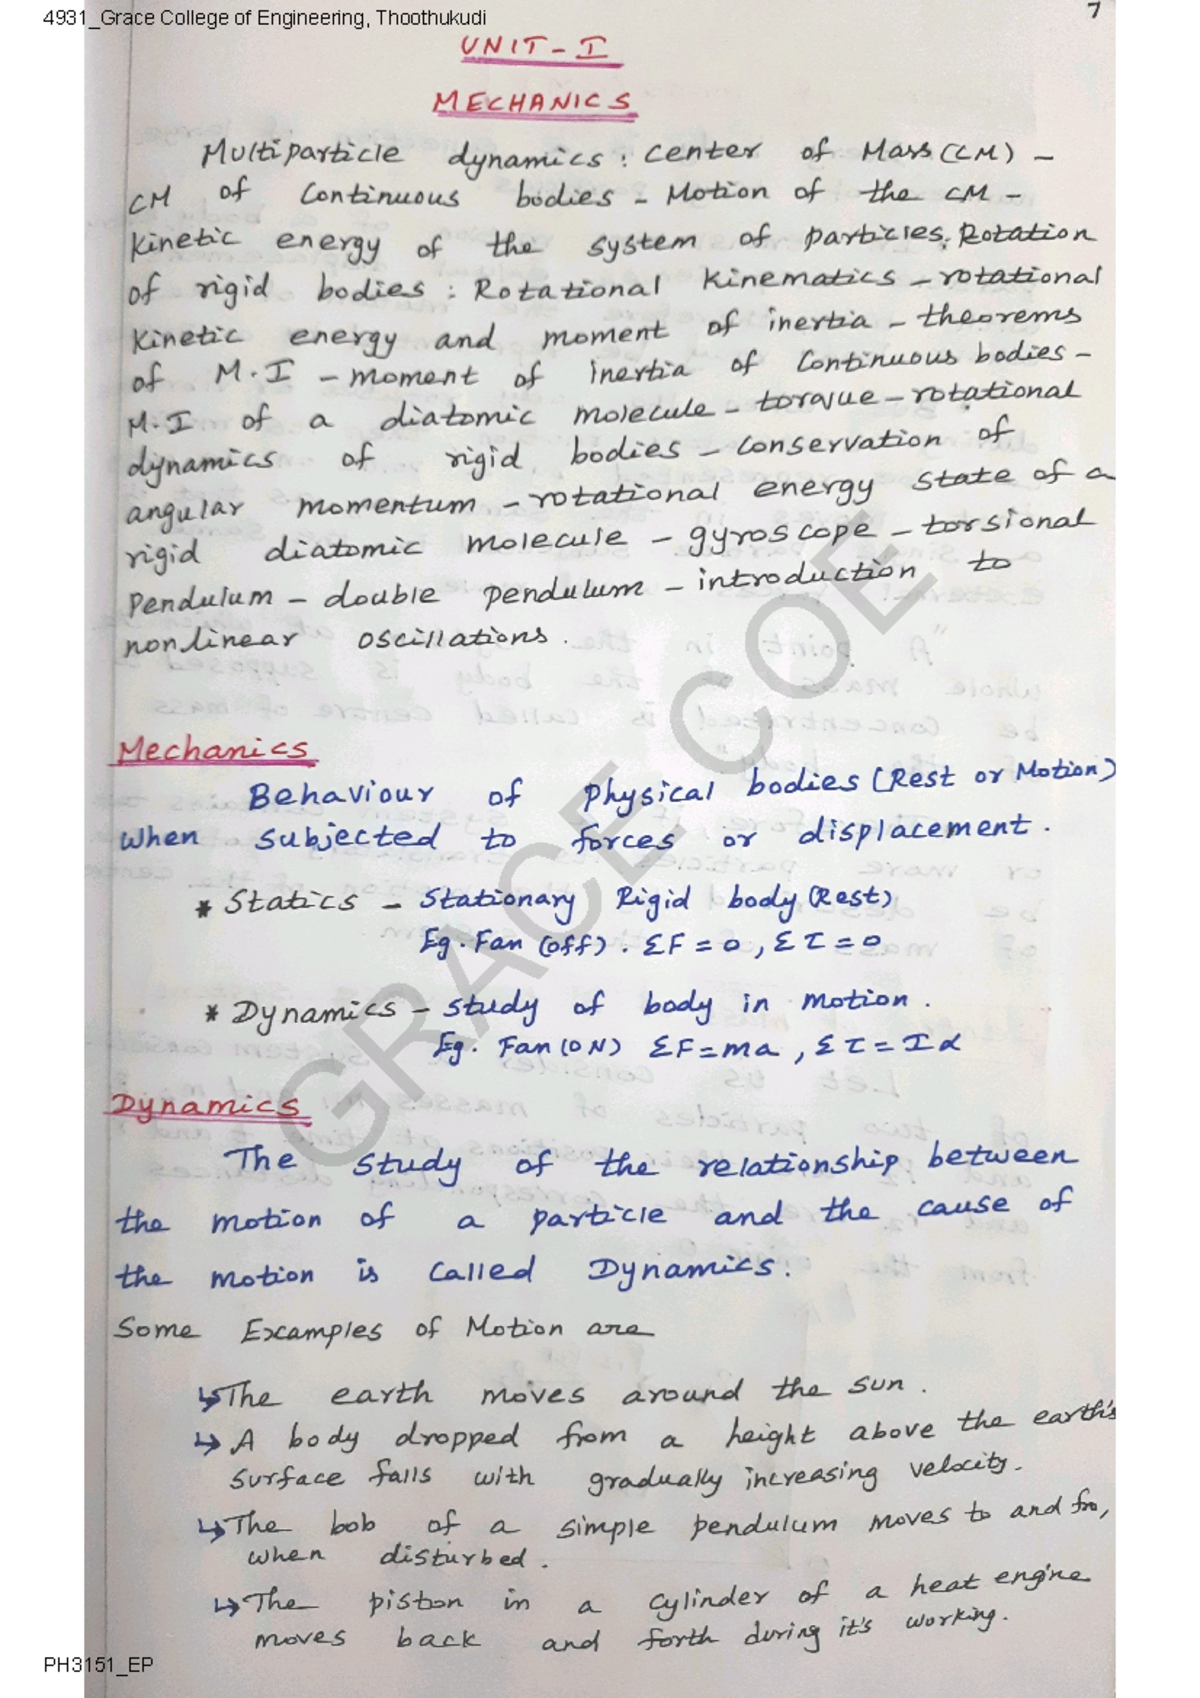 4931_Grace College of Engineering, Thoothukudi
7
UNIT - I
MECHANICS
Multiparticle dynamics : Center of Mass (CM) -
CM of Continuous bodies - Motion of the CM -
Kinetic energy of the system of particles. Rotation
of rigid bodies : Rotational Kinematics - rotational
Kinetic energy and moment of inertia - theorems
of M.I - moment of inertia of Continuous bodies -
M.I of a diatomic molecule - torque - rotational
dynamics of rigid bodies - Conservation of
angular momentum - rotational energy state of a
rigid diatomic molecule - gyroscope - torsional
Pendulum - double pendulum - introduction to
nonlinear oscillations.
Mechanics
Behaviour of Physical bodies (Rest or Motion)
When subjected to forces or displacement.
* Statics - Stationary Rigid body (Rest)
Eg. Fan (off). ΣF = 0, Στ = 0
* Dynamics - Study of body in motion.
Eg. Fan (ON) ΣF = ma, Στ = Iα
Dynamics
The study of the relationship between
the motion of a particle and the cause of
the motion is called Dynamics.
Some Examples of Motion are
↳ The earth moves around the sun.
↳ A body dropped from a height above the earth's
surface falls with gradually increasing velocity.
↳ The bob of a simple pendulum moves to and fro,
when disturbed.
↳ The piston in a cylinder of a heat engine
moves back and forth during it's working.
GRACE COE
PH3151_EP